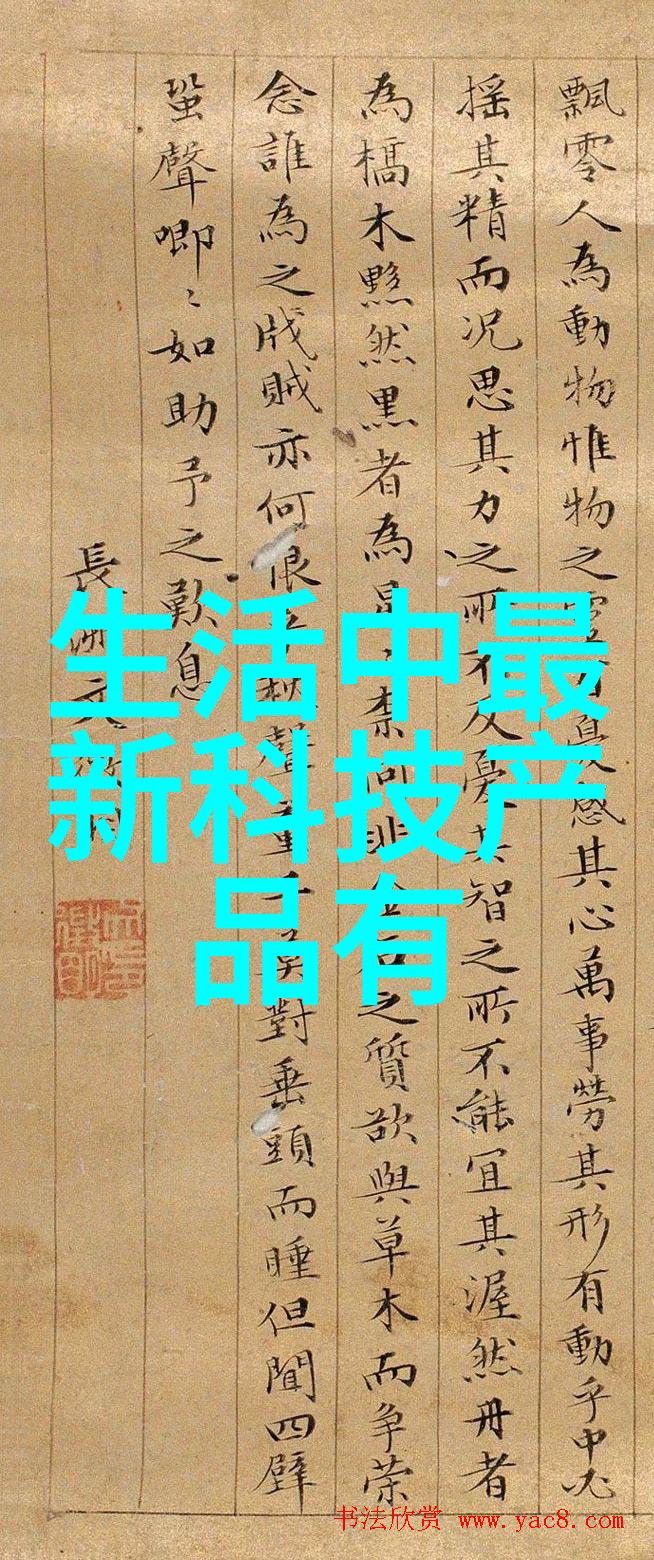 飄零人為動物惟物之憂感其心萬事勞其形有動乎中必
搖其精而况思其力之所不及憂其智之所不能宜其渥然丹者
為槁木黟然黑者為非金石之質欲與草木而争荣
念誰為之戕賊亦何恨秋聲童莫對垂頭而睡但聞四壁
蛩聲唧〻如助予之歎息
長洲文
生活中最
新科技产
品有
书法欣赏 www.yac8.com